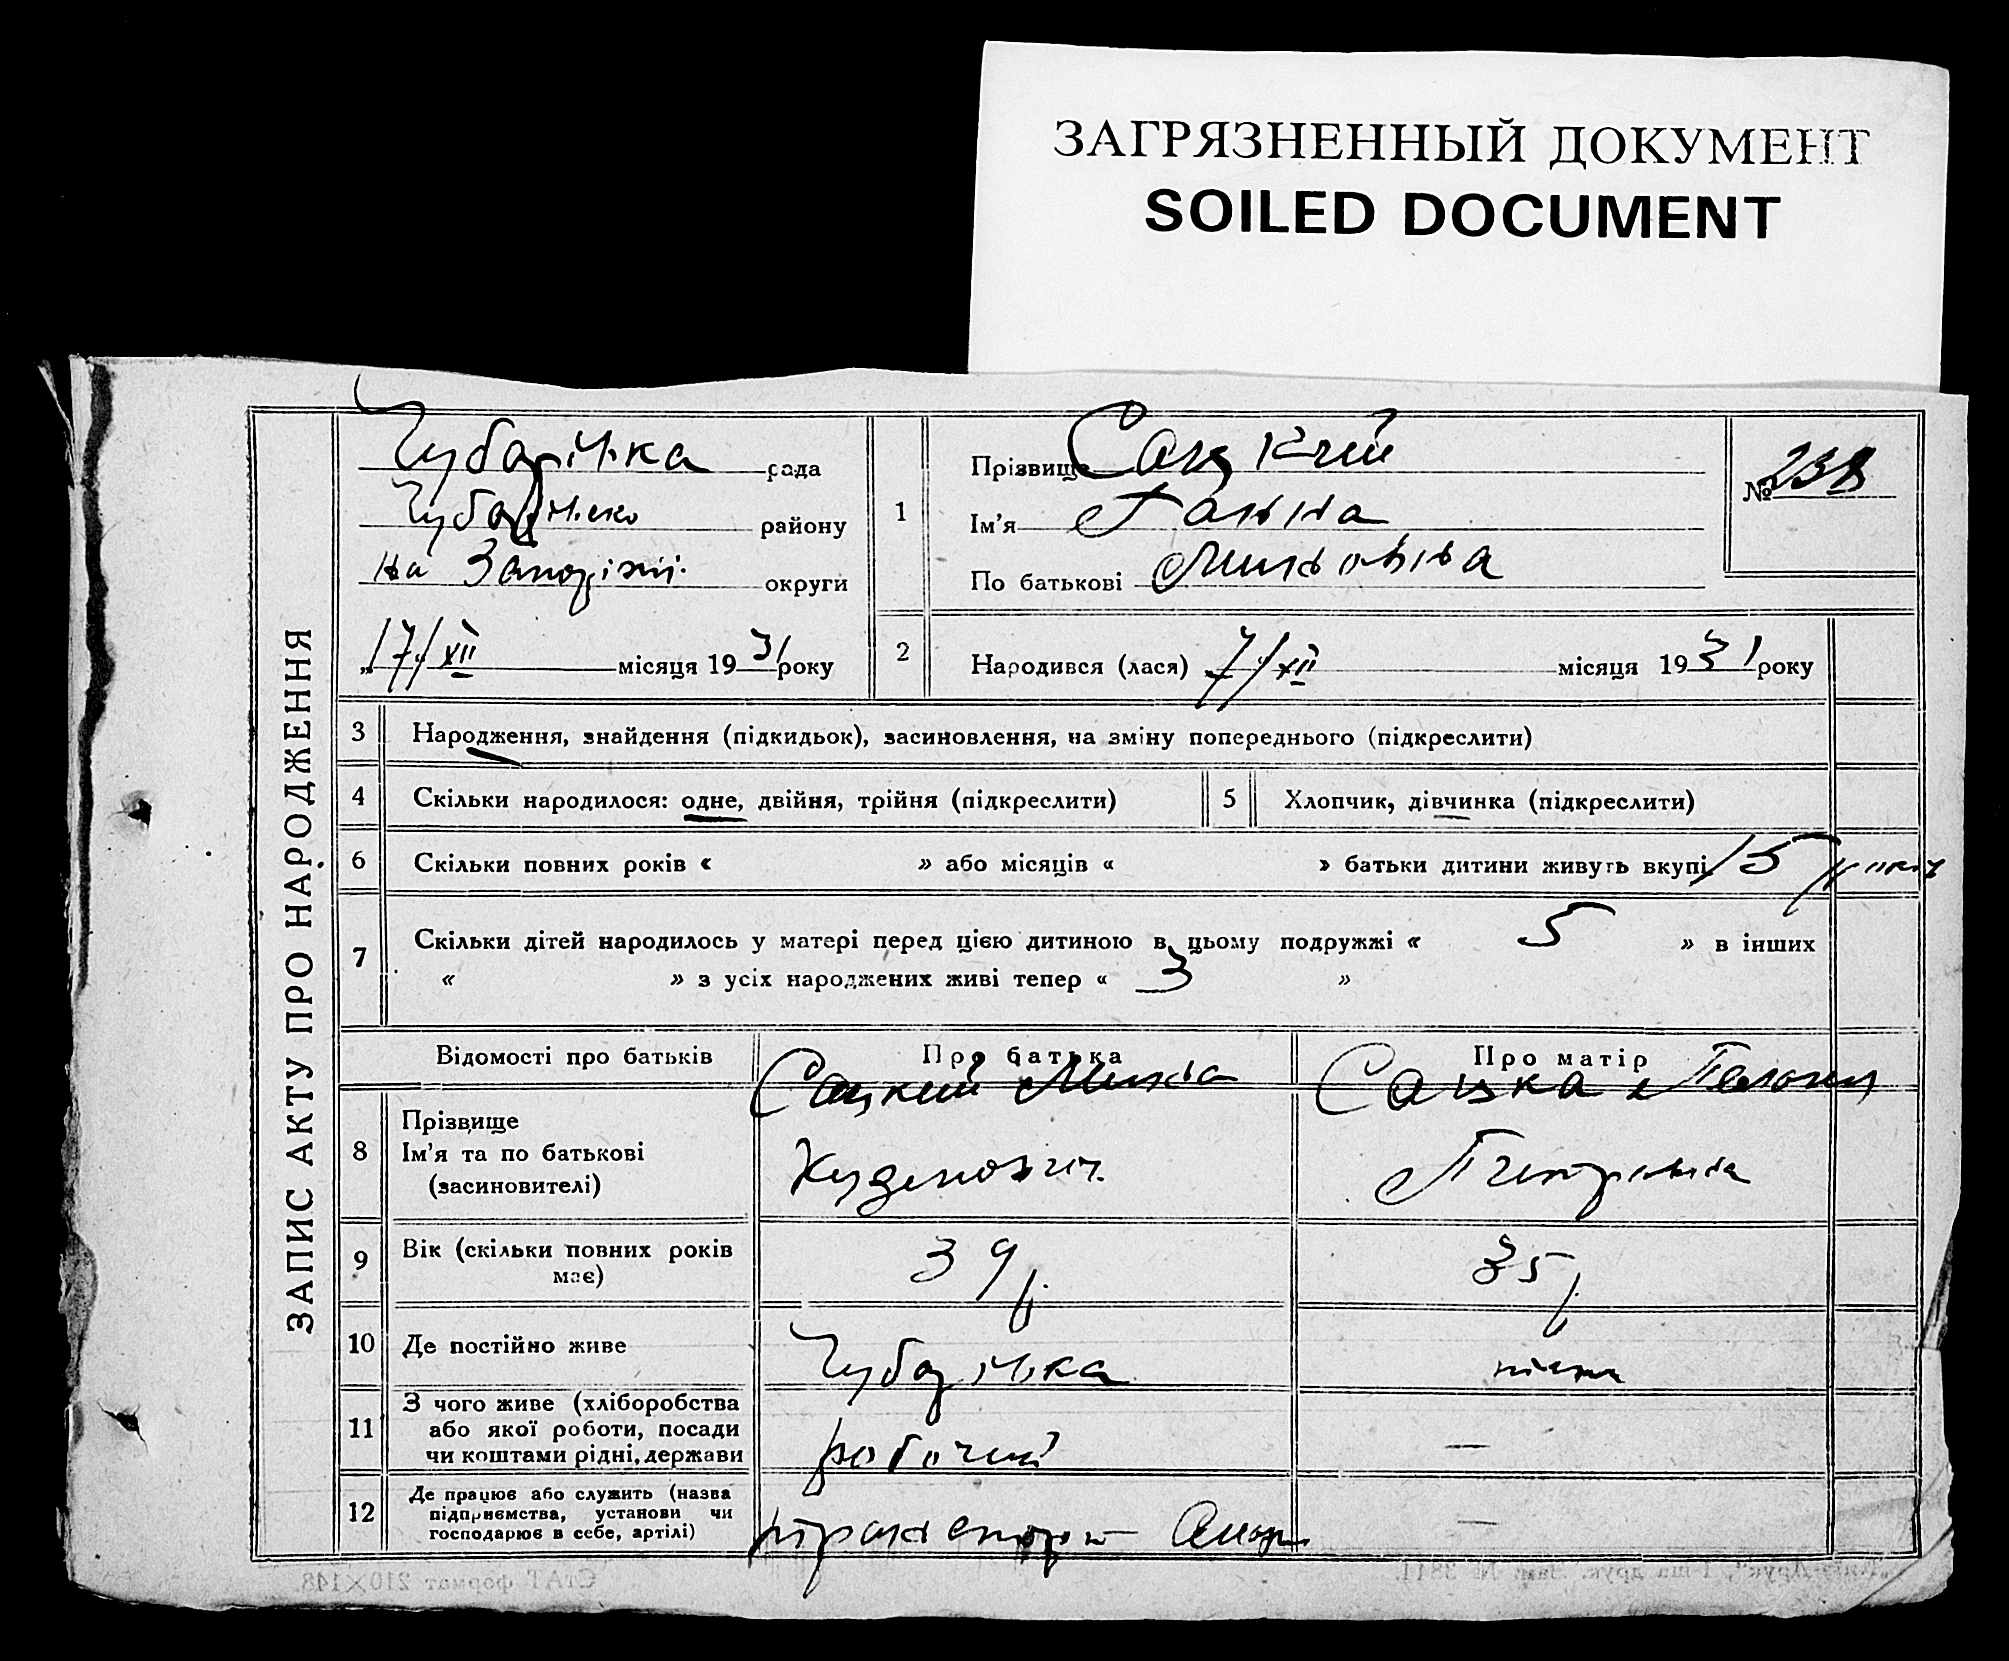 ЗАГРЯЗНЕННЫЙ ДОКУМЕНТ
SOILED DOCUMENT
ЗАПИС АКТУ ПРО НАРОДЖЕННЯ
Чубарівка сада
району
на Запоріжж. округи
„17/XII місяця 1931 року
1
Прізвище Сацкий
Ім'я Ганна
По батькові
№ 238
2
Народився (лася) 7/XII місяця 1931 року
3 Народження, знайдення (підкидьок), засиновлення, на зміну попереднього (підкреслити)
4 Скільки народилося: одне, двійня, трійня (підкреслити)
5 Хлопчик, дівчинка (підкреслити)
6 Скільки повних років « » або місяців « » батьки дитини живуть вкупі 15
7 Скільки дітей народилось у матері перед цією дитиною в цьому подружжі « 5 » в інших
« » з усіх народжених живі тепер « 3 »
Відомості про батьків Про батька Про матір
Сацкий Сацка
8 Прізвище
Ім'я та по батькові
(засиновителі)
9 Вік (скільки повних років має) 39 р. 35 р.
10 Де постійно живе Чубарівка
11 З чого живе (хліборобства
або якої роботи, посади
чи коштами рідні, держави робочий —
12 Де працює або служить (назва
підприємства, установи чи
господарює в себе, артілі) —
СтАТ формат 210×148.